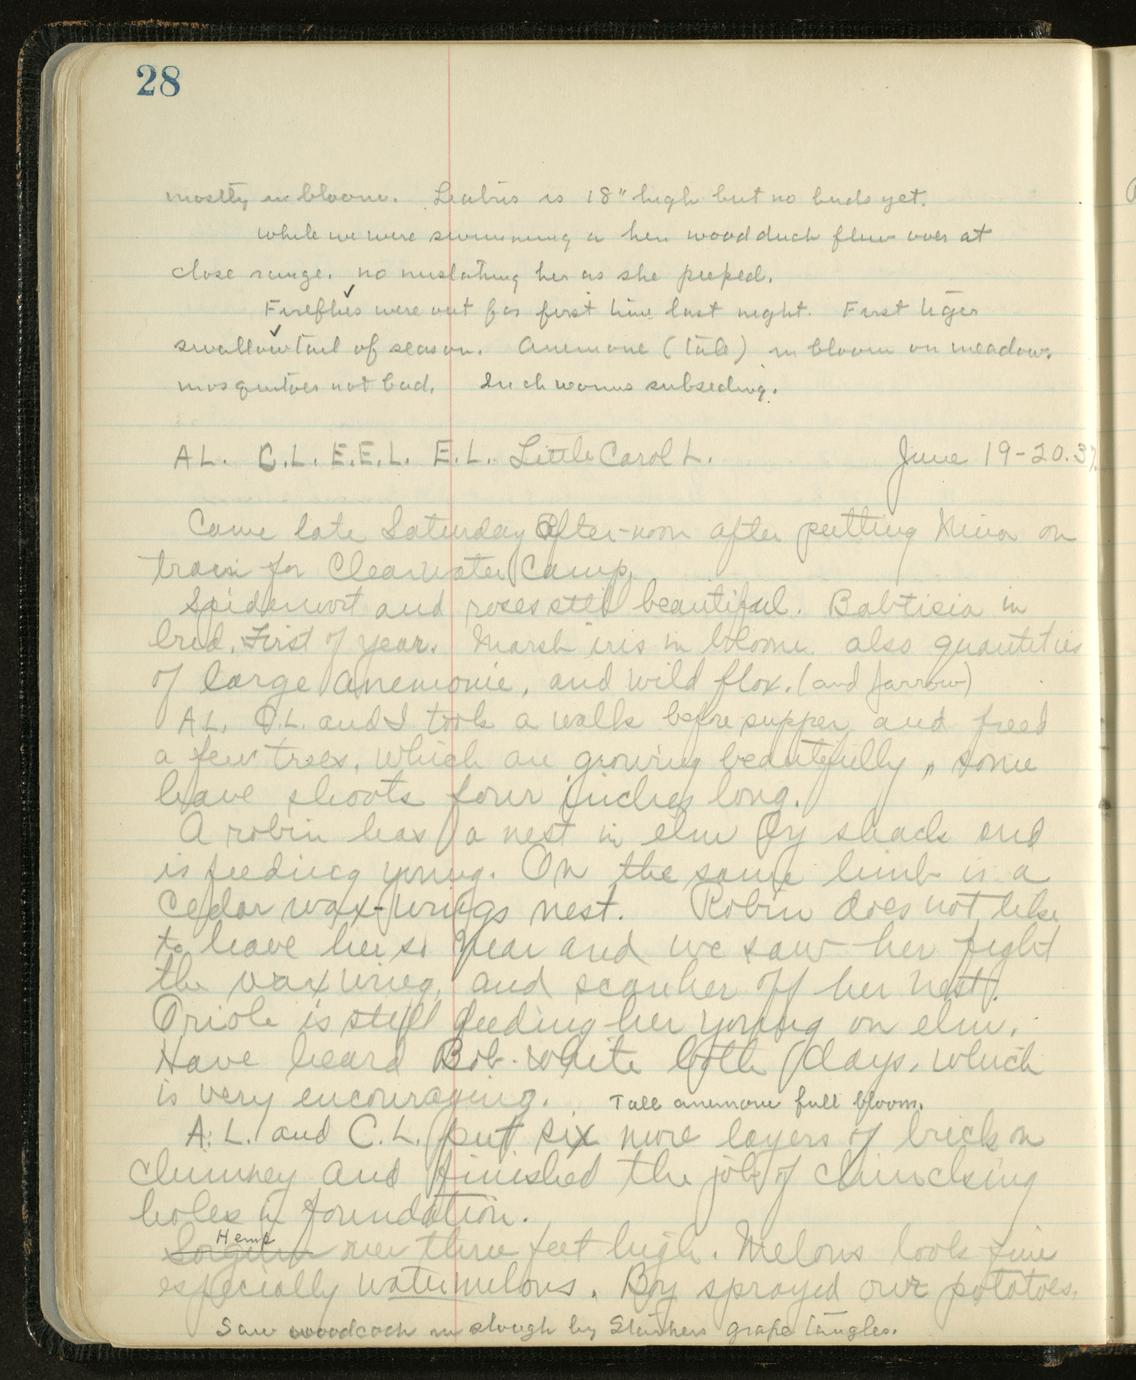 28
mostly in bloom. Liatris is 18" high but no buds yet.
While we were swimming a hen wood duck flew over at
close range. no mistaking her as she peeped.
Fireflies were out for first time last night. First tiger
swallowtail of season. Anemone (tall) in bloom on meadow.
mosquitoes not bad. Inch worms subseding.
AL. C.L. E.E.L. E.L. Little Carol L. June 19-20.37.
Came late Saturday After-noon after putting Nina on
train for Clearwater Camp.
Spiderwort and roses still beautiful. Babtisia in
bud. First of year. Marsh iris in bloom. also quantities
of large anemonie, and wild flox. (and Jarrow)
A.L. C.L. and I took a walk before supper and freed
a few trees, which are growing beautifully, some
have shoots four inches long.
A robin has a nest in elm by shack and
is feeding young. On the same limb is a
Cedar wax-wings nest. Robin does not like
to have her so near and we saw her fight
the waxwing, and scare her off her nest.
Oriole is still feeding her young on elm.
Have heard Bob-White both days, which
is very encouraging. Tall anemone full bloom.
A. L. and C. L. put six more layers of brick on
chimney and finished the job of chincking
holes in foundation.
Sorgum Hemp over three feet high. Melons look fine
especially watermelons. Boy sprayed our potatoes.
Saw woodcock in slough by grape tangles.